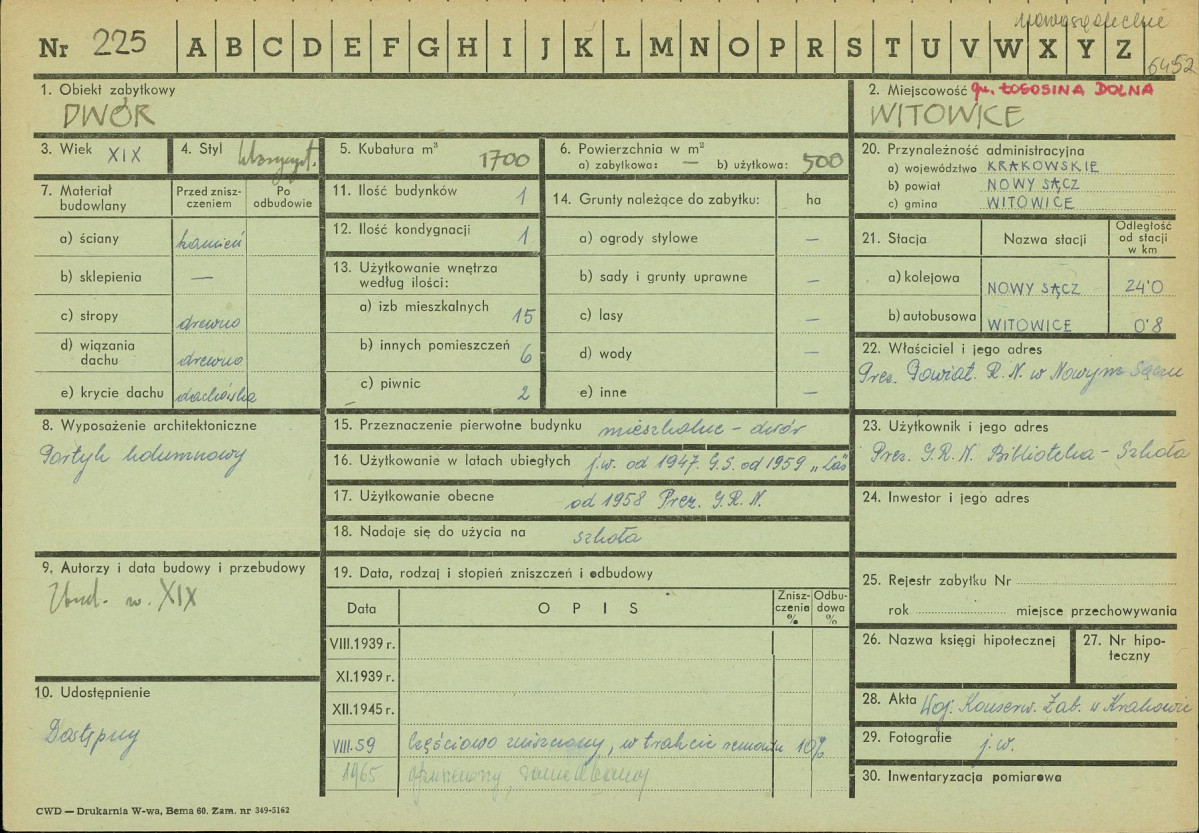 nowosądeckie
Nr 225 A B C D E F G H I J K L M N O P R S T U V W X Y Z
6452
1. Obiekt zabytkowy
DWÓR
2. Miejscowość gm. ŁOSOSINA DOLNA
WITOWICE
3. Wiek XIX
4. Styl klasycyst.
5. Kubatura m³ 1700
6. Powierzchnia w m²
a) zabytkowa: — b) użytkowa: 500
20. Przynależność administracyjna
a) województwo KRAKOWSKIE
b) powiat NOWY SĄCZ
c) gmina WITOWICE
7. Materiał budowlany
Przed znisz-
czeniem
Po
odbudowie
a) ściany kamień
b) sklepienia —
c) stropy drewno
d) wiązania
dachu drewno
e) krycie dachu dachówka
11. Ilość budynków 1
12. Ilość kondygnacji 1
13. Użytkowanie wnętrza
według ilości:
a) izb mieszkalnych 15
b) innych pomieszczeń 6
c) piwnic 2
14. Grunty należące do zabytku: ha
a) ogrody stylowe —
b) sady i grunty uprawne —
c) lasy —
d) wody —
e) inne —
21. Stacja
Nazwa stacji
Odległość
od stacji
w km
a) kolejowa NOWY SĄCZ 24'0
b) autobusowa WITOWICE 0'8
22. Właściciel i jego adres
Prez. Powiat. R. N. w Nowym Sączu
8. Wyposażenie architektoniczne
Portyk kolumnowy
15. Przeznaczenie pierwotne budynku mieszkalne - dwór
16. Użytkowanie w latach ubiegłych j.w. od 1947. G.S. od 1959 „Las"
17. Użytkowanie obecne od 1958 Prez. G.R.N.
18. Nadaje się do użycia na szkoła
23. Użytkownik i jego adres
Prez. G.R.N. Biblioteka - Szkoła
24. Inwestor i jego adres
9. Autorzy i data budowy i przebudowy
Zbud. w. XIX
19. Data, rodzaj i stopień zniszczeń i odbudowy
Data
O P I S
Znisz-
czenia
%
Odbu-
dowa
%
VIII.1939 r.
XI.1939 r.
XII.1945 r.
VIII.59 Częściowo zniszczony, w trakcie remontu 10%
1965 opuszczony, zaniedbany
25. Rejestr zabytku Nr
rok miejsce przechowywania
26. Nazwa księgi hipotecznej
27. Nr hipo-
teczny
10. Udostępnienie
Dostępny
28. Akta Woj. Konserw. Zab. w Krakowie
29. Fotografie j.w.
30. Inwentaryzacja pomiarowa
CWD — Drukarnia W-wa, Bema 60. Zam. nr 349-5162